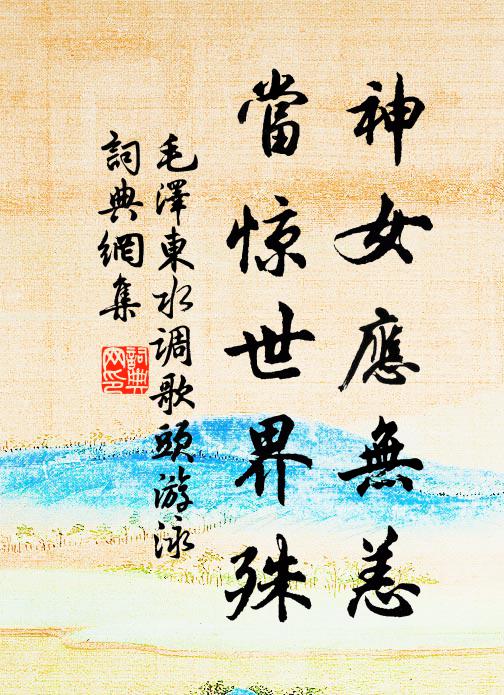 神女應無恙
當惊世界殊
毛澤東水调歌頭游泳
詞典網集
詞典
网印